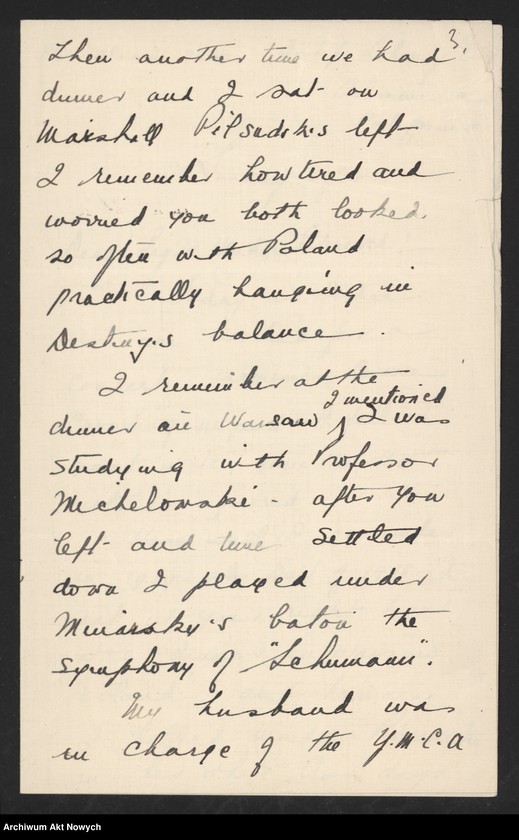 3.
Then another time we had
dinner and I sat on
Marshall Pilsudskis left
I remember how tired and
worried you both looked.
so often with Poland
practically hanging in
Destiny.s balance.
I remember at the
I mentioned
dinner in Warsaw I was
studying with Professor
Michelowski - after you
left and time settled
down I played under
's baton the
symphony of "Schumann".
My husband was
in charge of the Y.M.C.A
Archiwum Akt Nowych